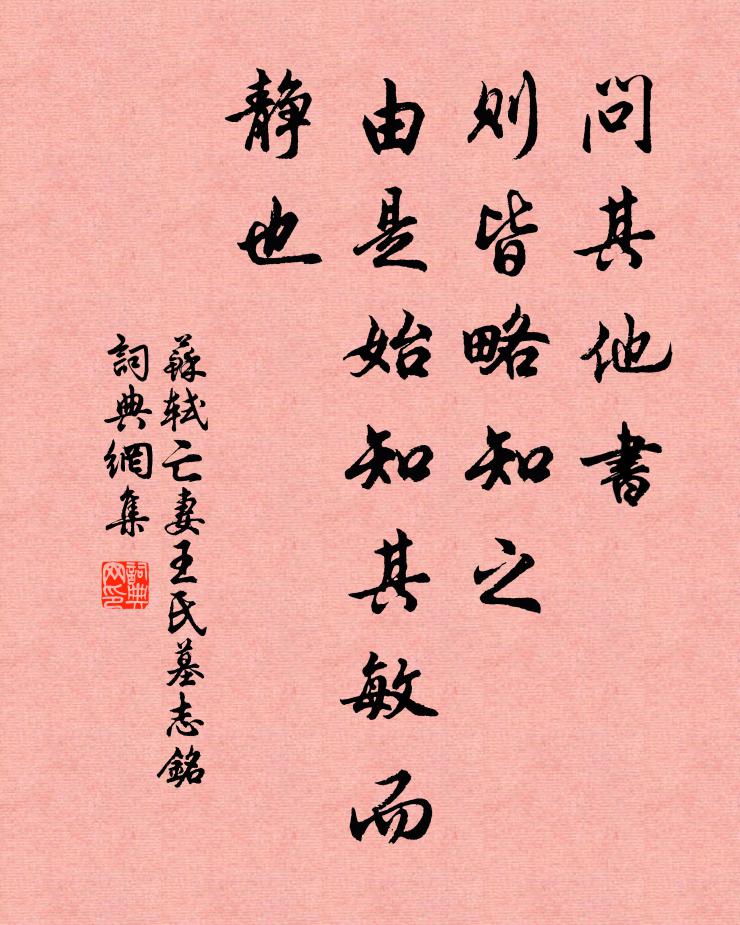 問其他書
則皆略知之
由是始知其敏而
静也
蘇軾亡妻王氏墓志銘
詞典網集
詞典网印